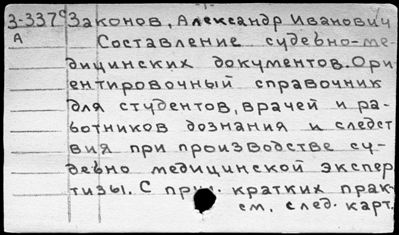 3-337с Законов, Александр Иванович
А Составление судебно-ме-
дицинских документов. Ори
ентировочный справочник
для студентов, врачей и ра-
ботников дознания и следст
вия при производстве су-
дебно медицинской экспер
тизы. С прил. кратких прак
см. след. карт.